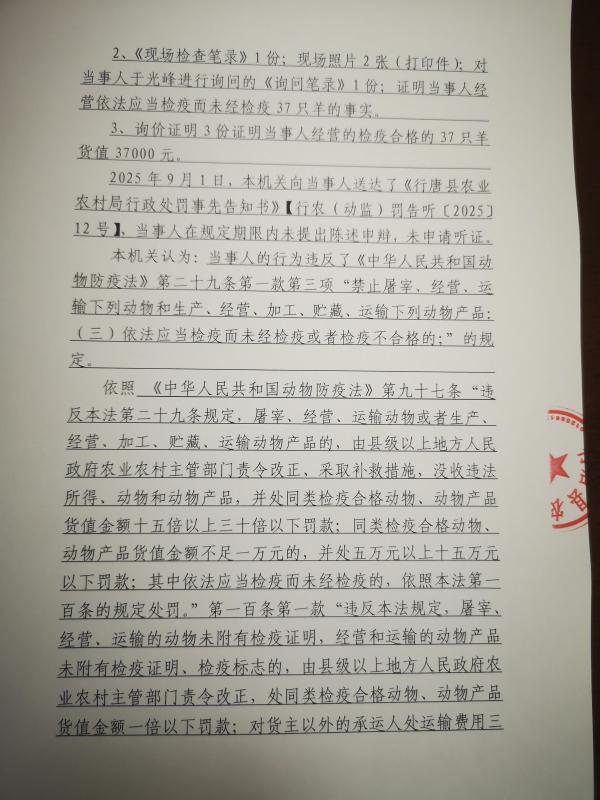 2、《现场检查笔录》1份；现场照片2张（打印件）；对
当事人于光峰进行询问的《询问笔录》1份；证明当事人经
营依法应当检疫而未经检疫37只羊的事实。
3、询价证明3份证明当事人经营的检疫合格的37只羊
货值37000元。
2025年9月1日，本机关向当事人送达了《行唐县农业
农村局行政处罚事先告知书》【行农（动监）罚告听〔2025〕
12号】，当事人在规定期限内未提出陈述申辩，未申请听证。
本机关认为：当事人的行为违反了《中华人民共和国动
物防疫法》第二十九条第一款第三项“禁止屠宰、经营、运
输下列动物和生产、经营、加工、贮藏、运输下列动物产品：
（三）依法应当检疫而未经检疫或者检疫不合格的；”的规
定。
依照 《中华人民共和国动物防疫法》第九十七条“违
反本法第二十九条规定，屠宰、经营、运输动物或者生产、
经营、加工、贮藏、运输动物产品的，由县级以上地方人民
政府农业农村主管部门责令改正、采取补救措施，没收违法
所得、动物和动物产品，并处同类检疫合格动物、动物产品
货值金额十五倍以上三十倍以下罚款；同类检疫合格动物、
动物产品货值金额不足一万元的，并处五万元以上十五万元
以下罚款；其中依法应当检疫而未经检疫的，依照本法第一
百条的规定处罚。”第一百条第一款“违反本法规定，屠宰、
经营、运输的动物未附有检疫证明，经营和运输的动物产品
未附有检疫证明、检疫标志的，由县级以上地方人民政府农
业农村主管部门责令改正，处同类检疫合格动物、动物产品
货值金额一倍以下罚款；对货主以外的承运人处运输费用三